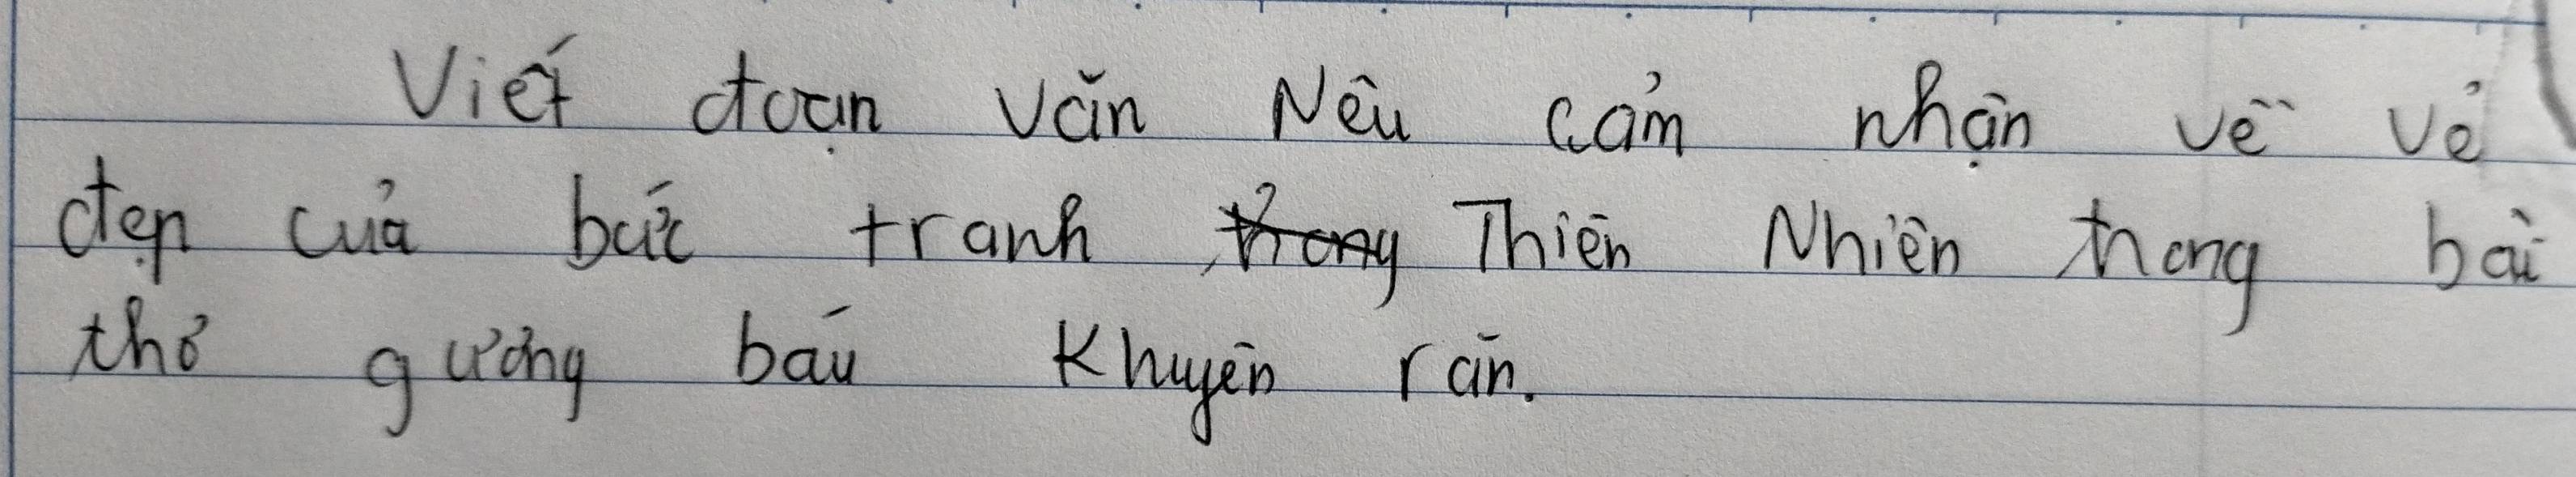 Viết đoạn văn Nêu cảm nhận về vẻ
đẹp của bức tranh Thiên Nhiên trong bài
thơ gương báu Khuyên răn.